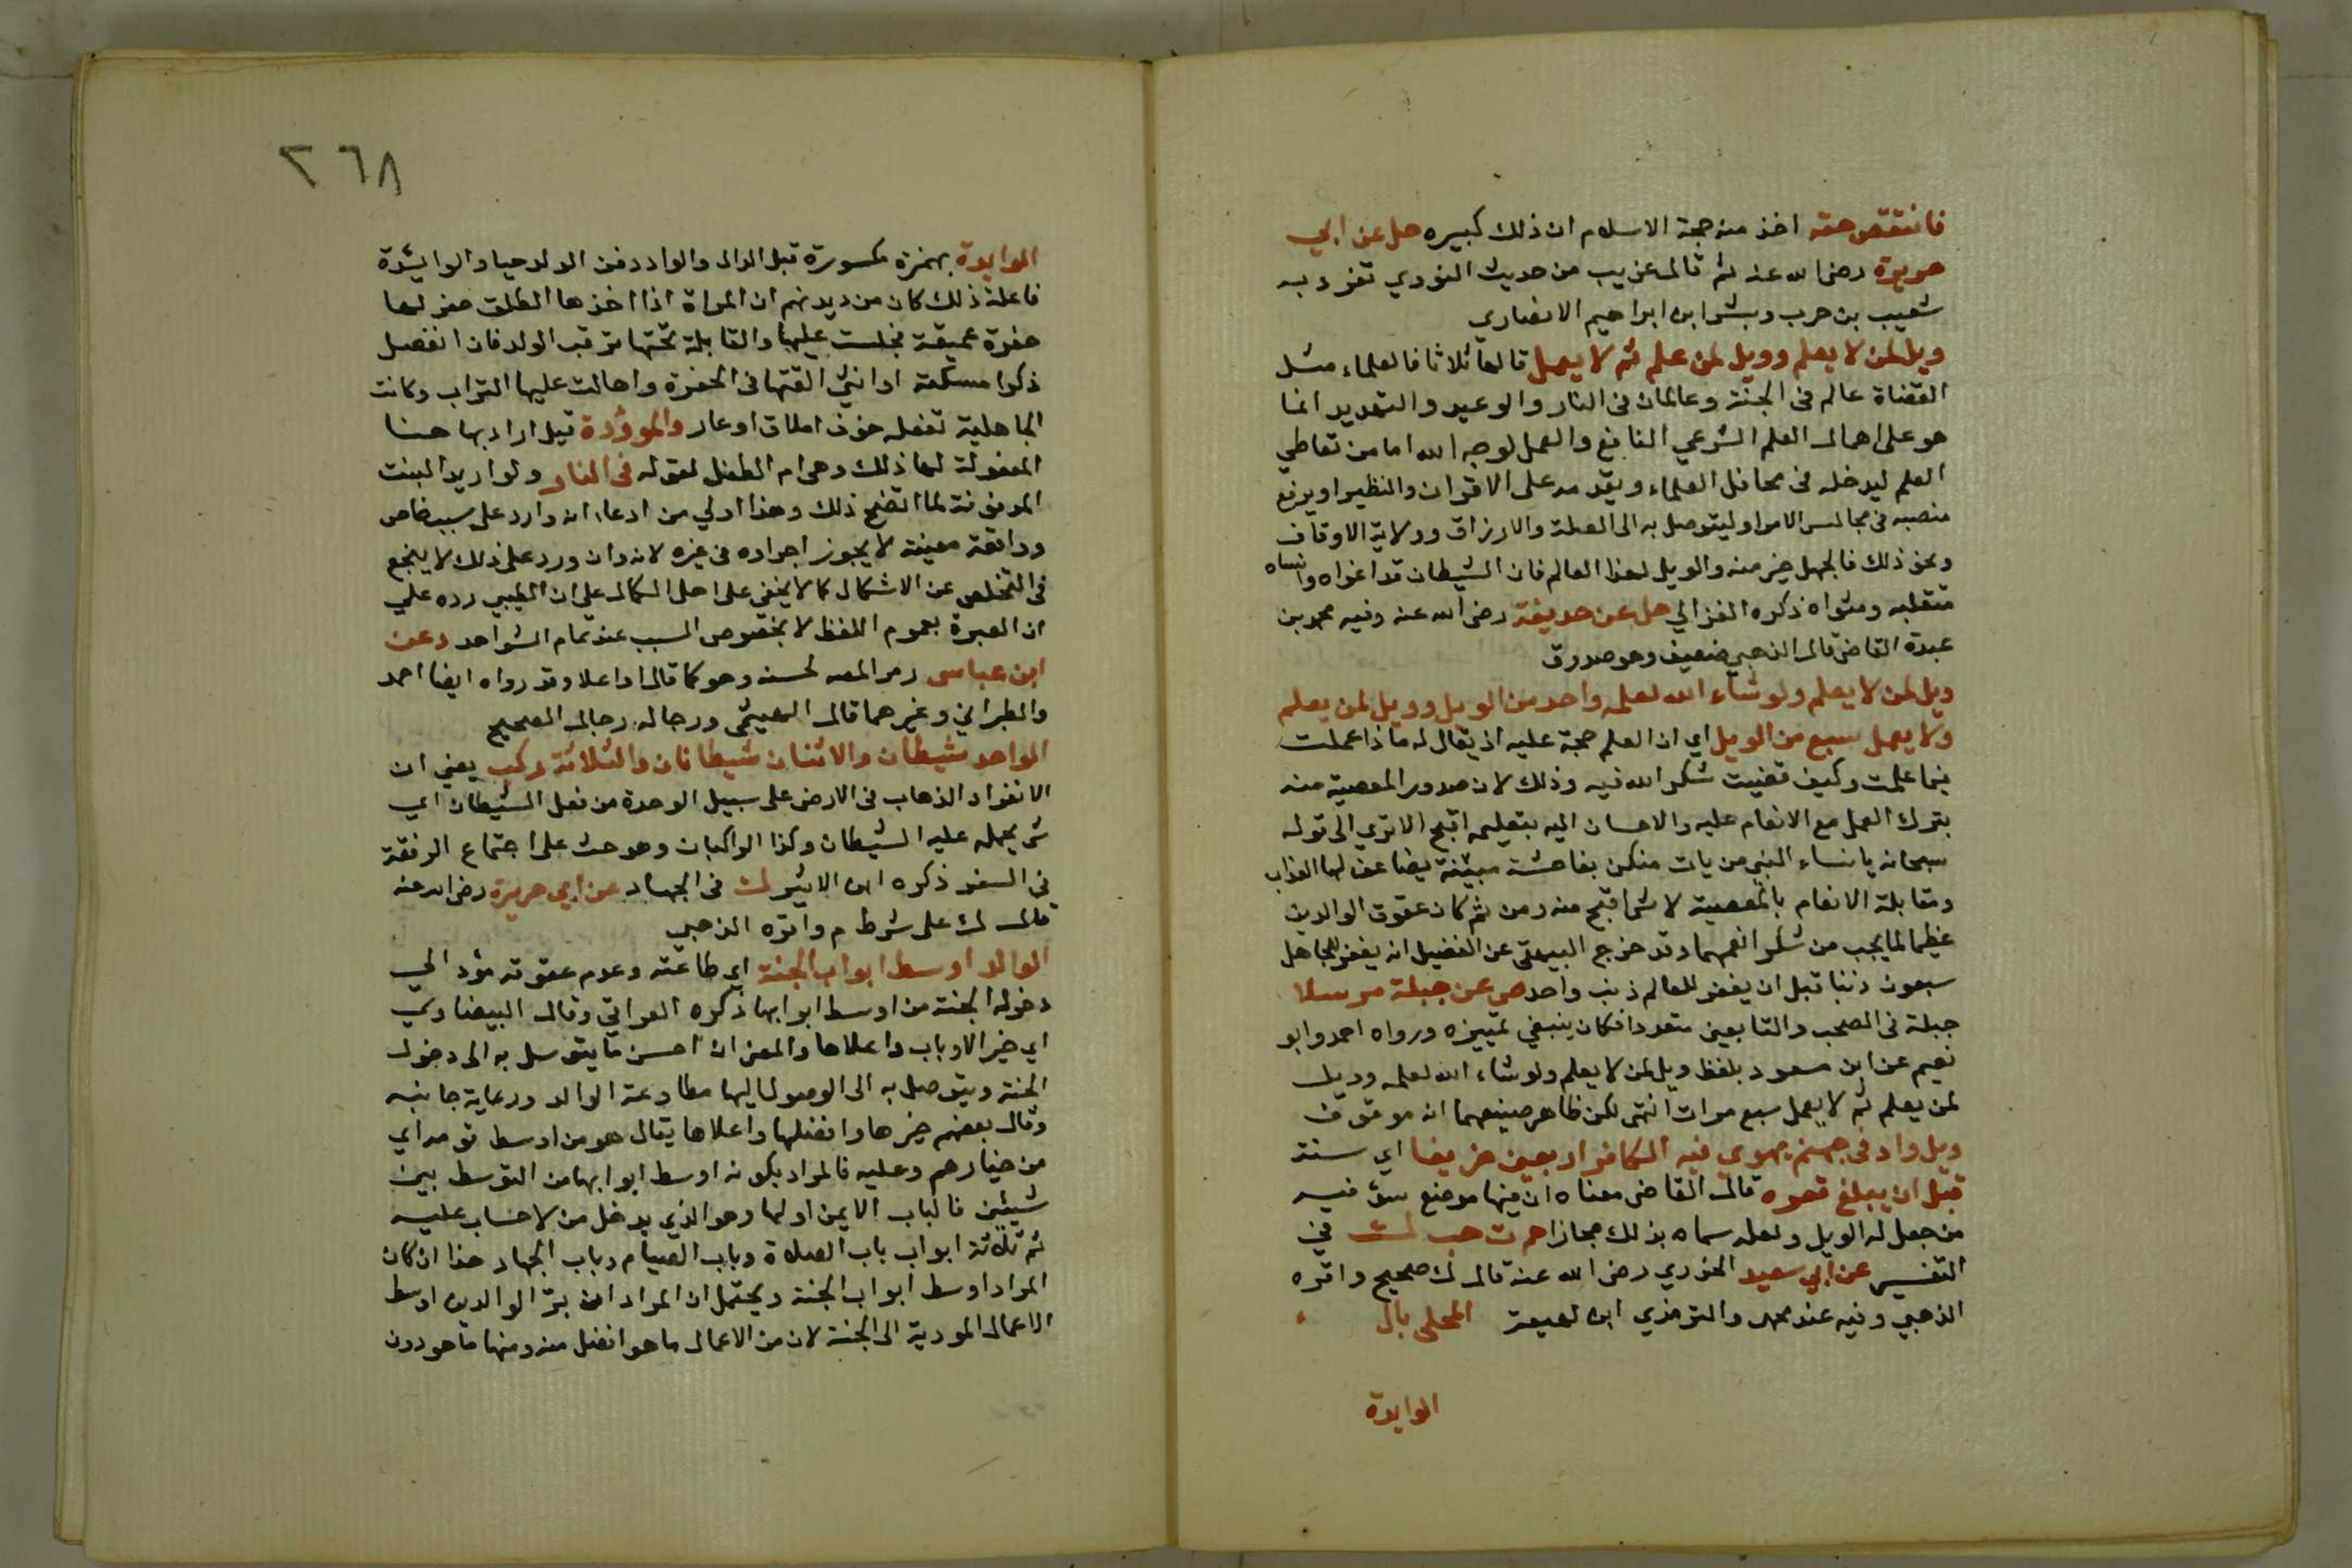 فانتقص حقه اخذ منه حجة الاسلام ان ذلك كبيره حل عن ابي
هريرة رضي الله عنه ثم قال غريب من حديث الثوري تفرد به
شعيب بن حرب وبشر ابن ابراهيم الانصاري
ويل لمن لا يعلم وويل لمن علم ثم لا يعمل قالها ثلاثا فالعلماء مثل
القضاة عالم في الجنة وعالمان في النار والوعيد والتهديد انما
هو على اهمال العلم الشرعي النافع والعمل لوجه الله اما من تعاطي
العلم ليدخله في محافل العلماء ويقدمه على الاقران والنظير او يرفع
منصبه في مجالس الامرا وليتوصل به الى الصلة والارزاق وولاية الاوقاف
ونحو ذلك فالجهل خير منه والويل لهذا العالم فان الشيطان قد اغواه وانساه
متقلبه ومثواه ذكره الغزالي حل عن حذيفة رضي الله عنه وفيه محمد بن
عبدة القاضي قال الذهبي ضعيف وهو صدوق
ويل لمن لا يعلم ولو شاء الله لعلمه واحد من الويل وويل لمن يعلم
ولا يعمل سبع من الويل اي ان العلم حجة عليه اذ يقال له ماذا عملت
فيما علمت وكيف قضيت شكر الله فيه وذلك لان صدور المعصية منه
بترك العمل مع الانعام عليه والاحسان اليه بتعليمه اقبح الا ترى الى قوله
سبحانه يا نساء النبي من يات منكن بفاحشة مبينة يضاعف لها العذاب
ومقابلة الانعام بالمعصية لا شيء اقبح منه ومن ثم كان عقوق الوالدين
عظيما لما يجب من شكر انعمهما وقد خرج البيهقي عن الفضيل انه يغفر للجاهل
سبعون ذنبا قبل ان يغفر للعالم ذنب واحد ص عن جبلة مرسلا
جبلة في الصحب والتابعين متعدد فكان ينبغي تمييزه ورواه احمد وابو
نعيم عن ابن مسعود بلفظ ويل لمن لا يعلم ولو شاء الله لعلمه وويل
لمن يعلم ثم لا يعمل سبع مرات انتهى لكن ظاهر صنيعهما انه موقوف
ويل واد في جهنم يهوي فيه الكافر اربعين خريفا اي سنة
قبل ان يبلغ قعره قال القاضي معناه ان فيها موضع سق فيه
من جعل له الويل ولعله سماه بذلك مجازا حم ت حب ك في
التفسير عن ابي سعيد الخدري رضي الله عنه قال ك صحيح واقره
الذهبي وفيه عند محمد والترمذي ابن لهيعة المحلى بال
الوايدة
٢٦٨
الوايدة بهمزة مكسورة قبل الدال والواد دفن الولد حيا والوايئدة
فاعلة ذلك كان من ديدنهم ان المراة اذا اخذها الطلق حفر لها
حفرة عميقة فجلست عليها والقابلة تحتها ترقب الولد فان انفصل
ذكرا مسكته او انثى القتها في الحفرة واهالت عليها التراب وكانت
الجاهلية تفعله خوف املاق او عار والموؤدة قيل اراد بها هنا
المفعولة لها ذلك وهي ام الطفل لقوله في النار ولو اريد البنت
المدفونة لما اتضح ذلك وهذا اولي من ادعاء انه وارد على سبب خاص
وواقعة معينة لا يجوز اجراوه في غيره لانه وان ورد على ذلك لا ينجع
في التخلص عن الاشكال كما لا يخفى على اهل الكمال على ان الطيبي رده علي
ان العبرة بعموم اللفظ لا بخصوص السبب عند تمام الشواهد د عن
ابن عباس رمز المصه لحسنه وهو كما قال او اعلا وقد رواه ايضا احمد
والطبراني وغيرهما قال الهيثمي ورجاله رجال الصحيح
الواحد شيطان والاثنان شيطانان والثلاثة ركب يعني ان
الانفراد الذهاب في الارض على سبيل الوحدة من فعل الشيطان اي
شي يحمله عليه الشيطان وكذا الراكبان وهو حث على اجتماع الرفقة
في السفر ذكره ابن الاثير ك في الجهاد عن ابي هريرة رضي الله عنه
قال ك على شرط م واقره الذهبي
الوالد اوسط ابواب الجنة اي طاعته وعدم عقوقه مؤد الي
دخوله الجنة من اوسط ابوابها ذكره العراقي وقال البيضاوي
اي خير الابواب واعلاها والمعنى ان احسن ما يتوسل به الى دخول
الجنة ويتوصل به الى الوصول اليها مطاوعة الوالد ورعاية جانبه
وقال بعضهم خيرها وافضلها واعلاها يقال هو من اوسط قومه اي
من خيارهم وعليه فالمراد بكونه اوسط ابوابها من التوسط بين
شيئين فالباب الايمن اولها وهو الذي يدخل من لا حساب عليه
ثم ثلاثة ابواب باب الصلاة وباب الصيام وباب الجهاد هذا ان كان
المراد اوسط ابواب الجنة ويحتمل ان المراد ان برّ الوالدين اوسط
الاعمال المودية الى الجنة لان من الاعمال ما هو افضل منه ومنها ما هو دون